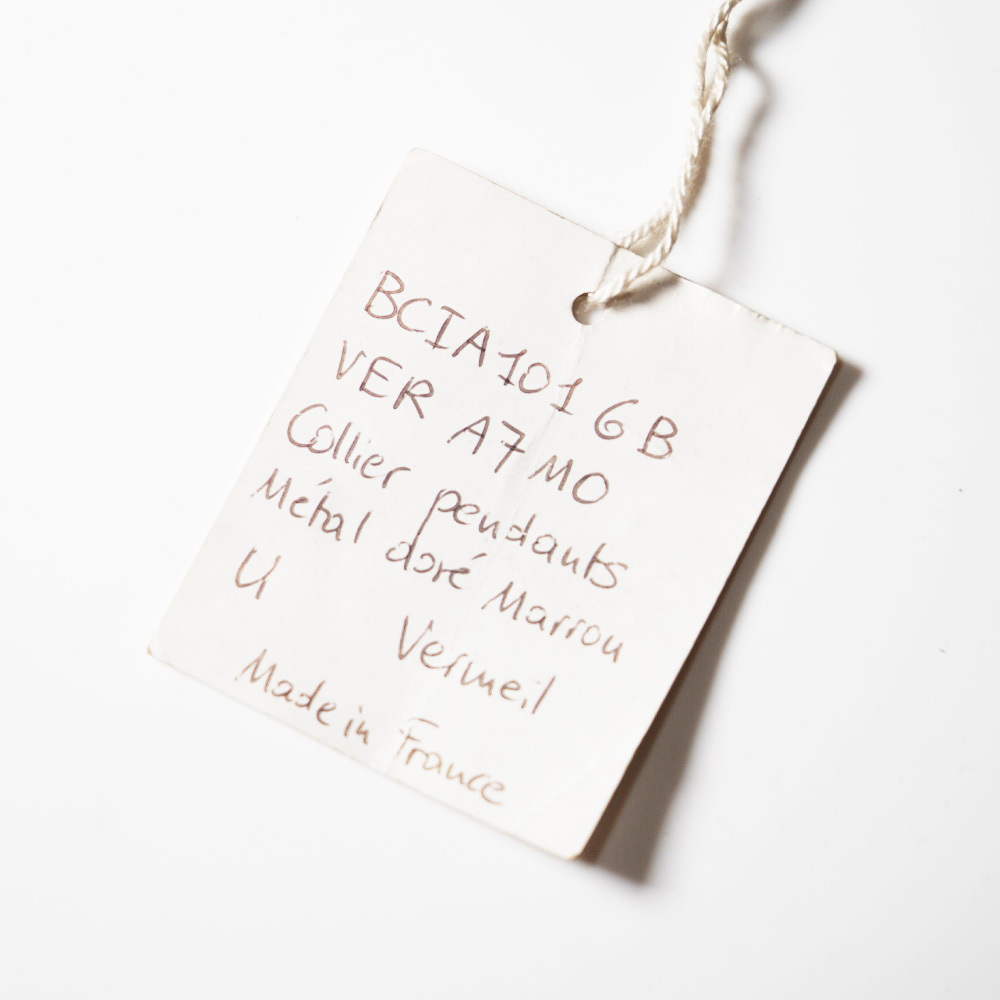 BCIA101 6B
VER A7MO
Collier pendants
Métal doré Marrou
U Vermeil
Made in France